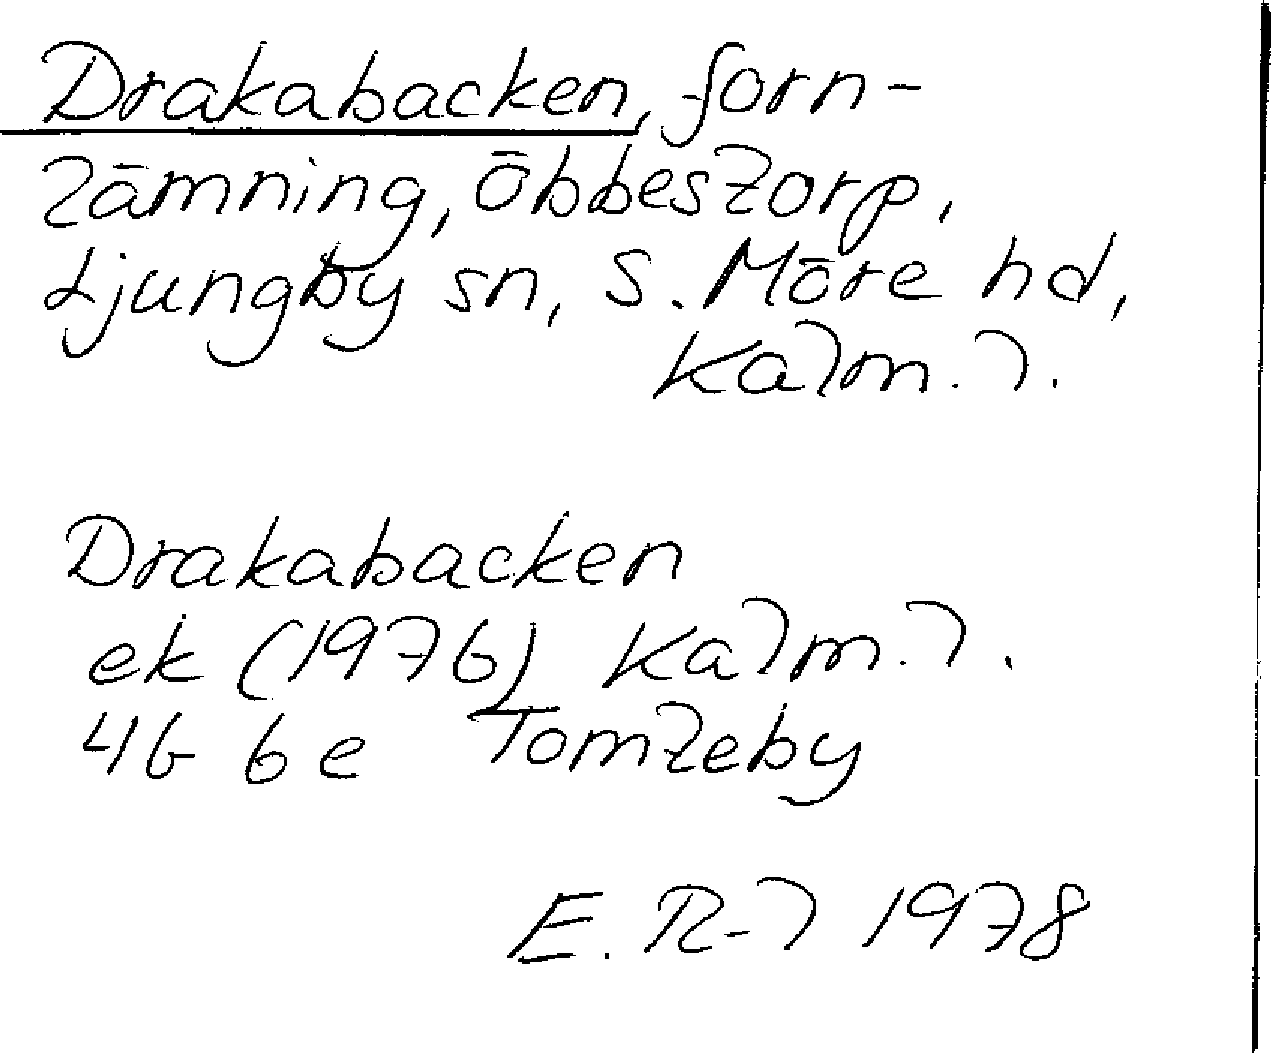 Drakabacken, forn-
lämning, Öbbestorp,
Ljungby sn, S. Möre hd,
Kalm. l.
Drakabacken
ek (1976) Kalm. l.
4G 6e Tomteby
E. R-l 1978